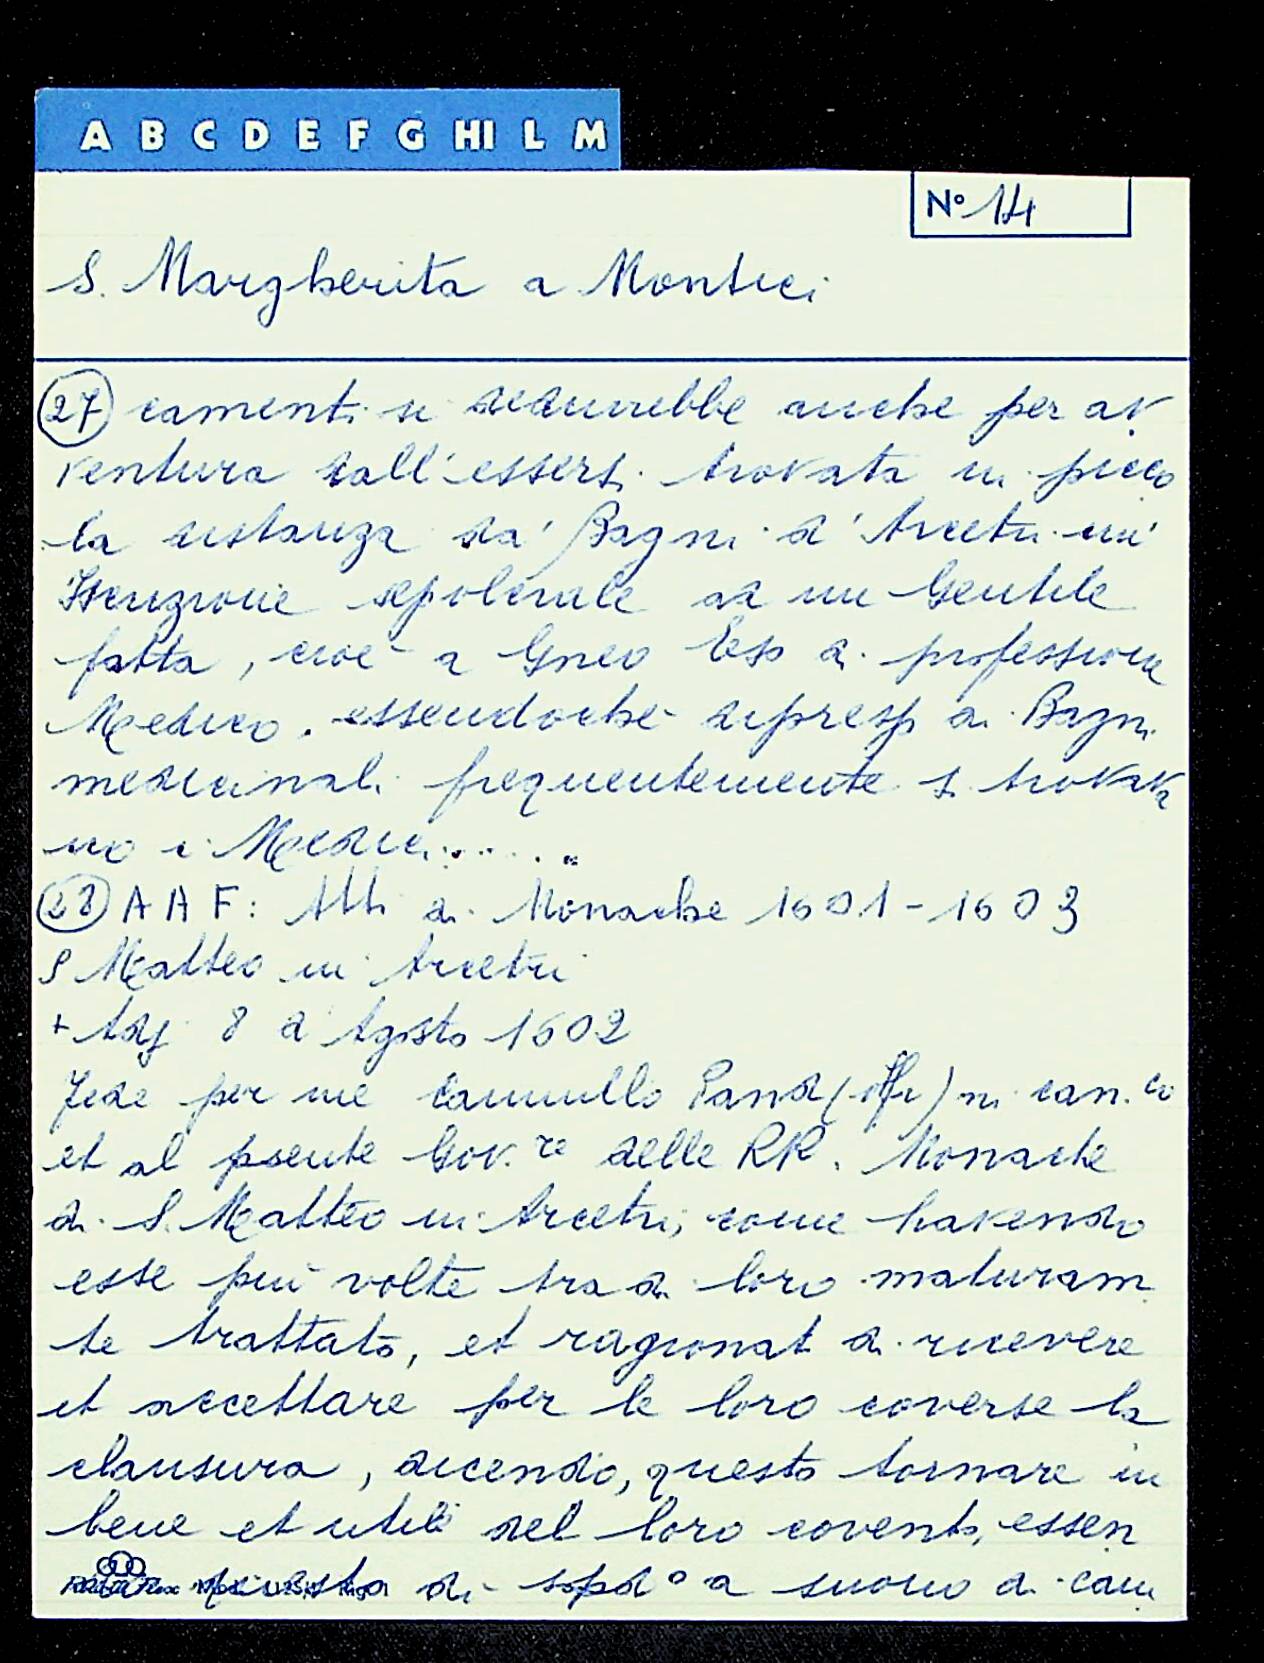 A B C D E F G HI L M
N° 14
S. Margherita a Montici
(27) camenti si dedurrebbe anche per av
ventura dall'essersi trovata in picco
la distanza da' Bagni d'Arcetri un'
Iscrizione sepolcrale ad un Gentile
fatta, cioè a Gneo Eso di professione
Medico. essendoché dipresso ai Bagni
medicinali frequentemente si trovava
no i Medici..... "
(28) A A F: Atti di Monache 1601-1603
S Matteo in Arcetri
+ Adj 8 d'Agosto 1602
Fede per me Cammillo Pand(olfi)ni can.co
et al psente Gov.re delle RR. Monache
di S. Matteo in Arcetri, come havendo
esse più volte tra di loro maturam
te trattato, et ragionato di ricevere
et accettare per le loro coverse la
clausura, dicendo, questo tornare in
bene et utile del loro covento, essen
questa di sopd° a suono di cam